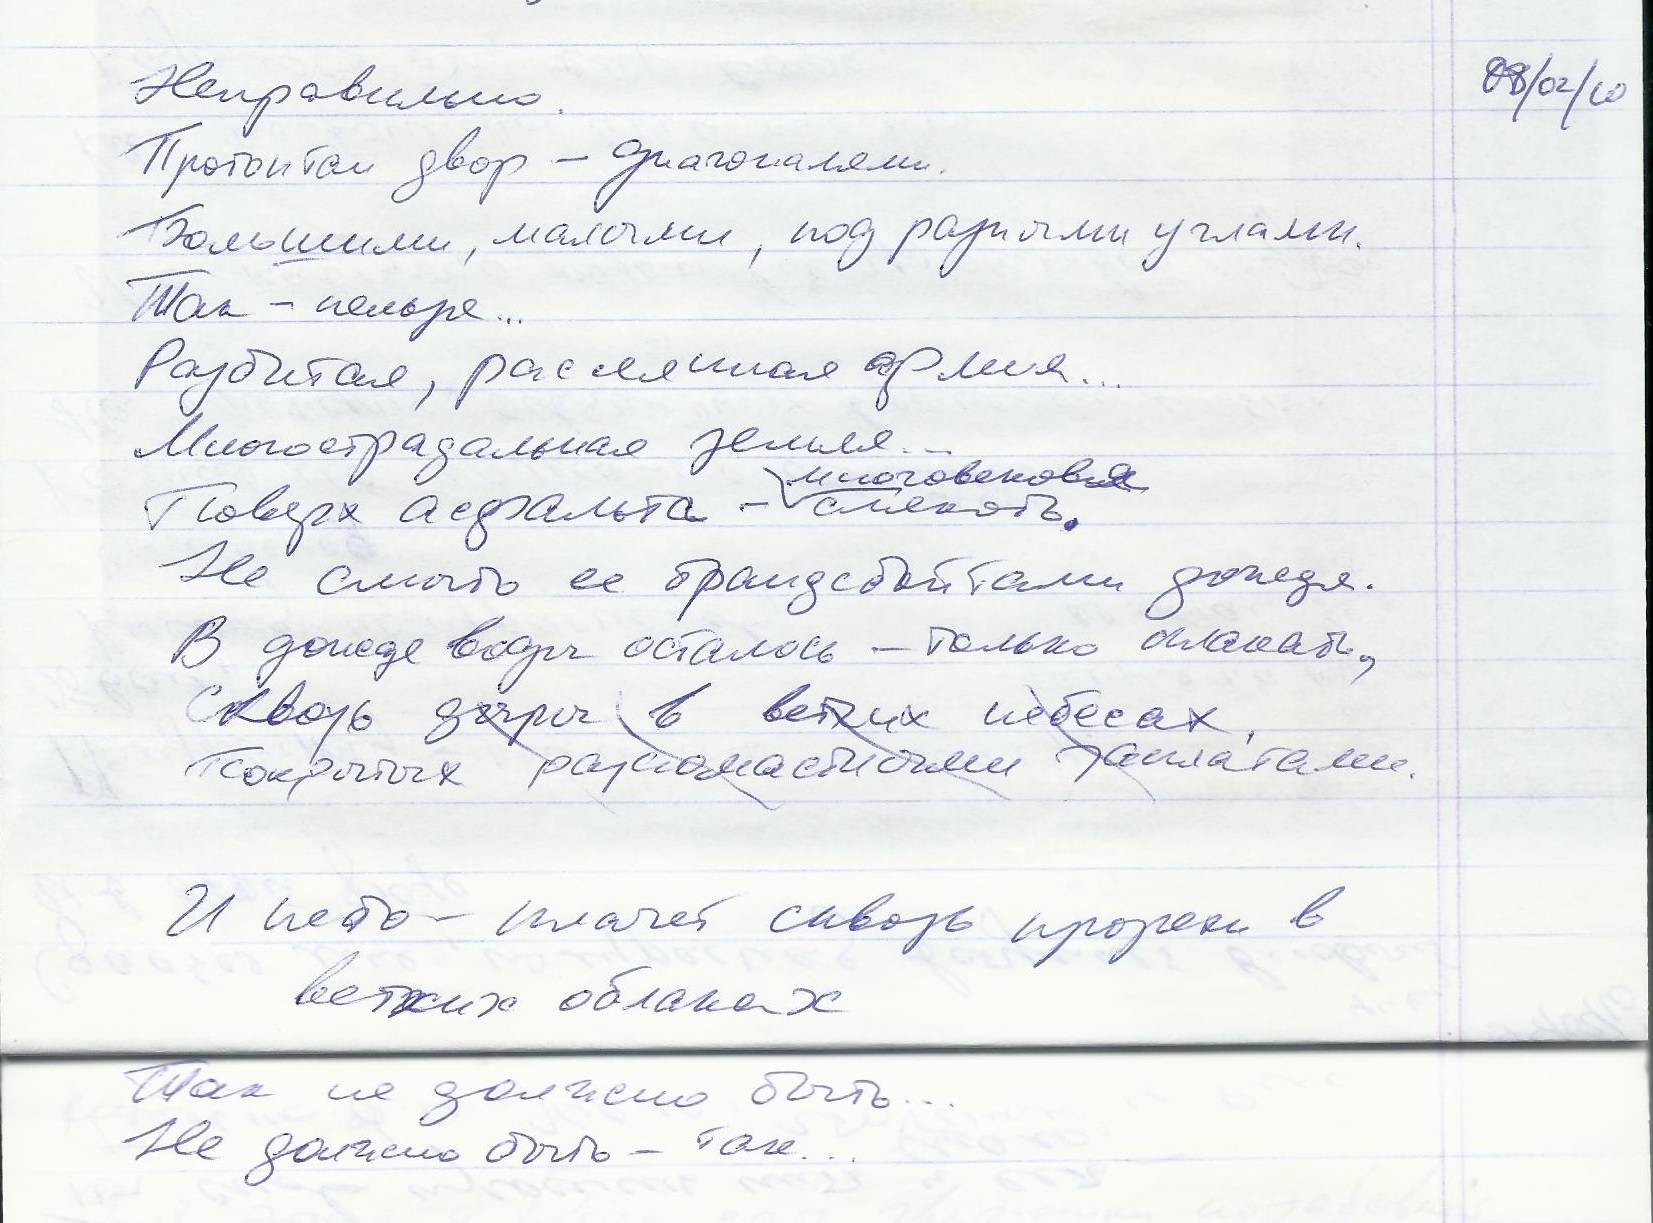 08/02/10
Неправильно.
Протоптан двор – диагоналями.
Большими, малыми, под разными углами.
Так – нельзя...
Разбитая, рассеянная армия...
Многострадальная земля...
многовековая
Поверх асфальта – слякоть.
Не смыть ее брандсбойтами дождя.
В дожде воды осталось – только плакать,
Сквозь дыры в ветхих небесах,
Покрытых разномастными заплатами.
И небо – плачет сквозь прорехи в
ветхих облаках
Так не должно быть...
Не должно быть – так...